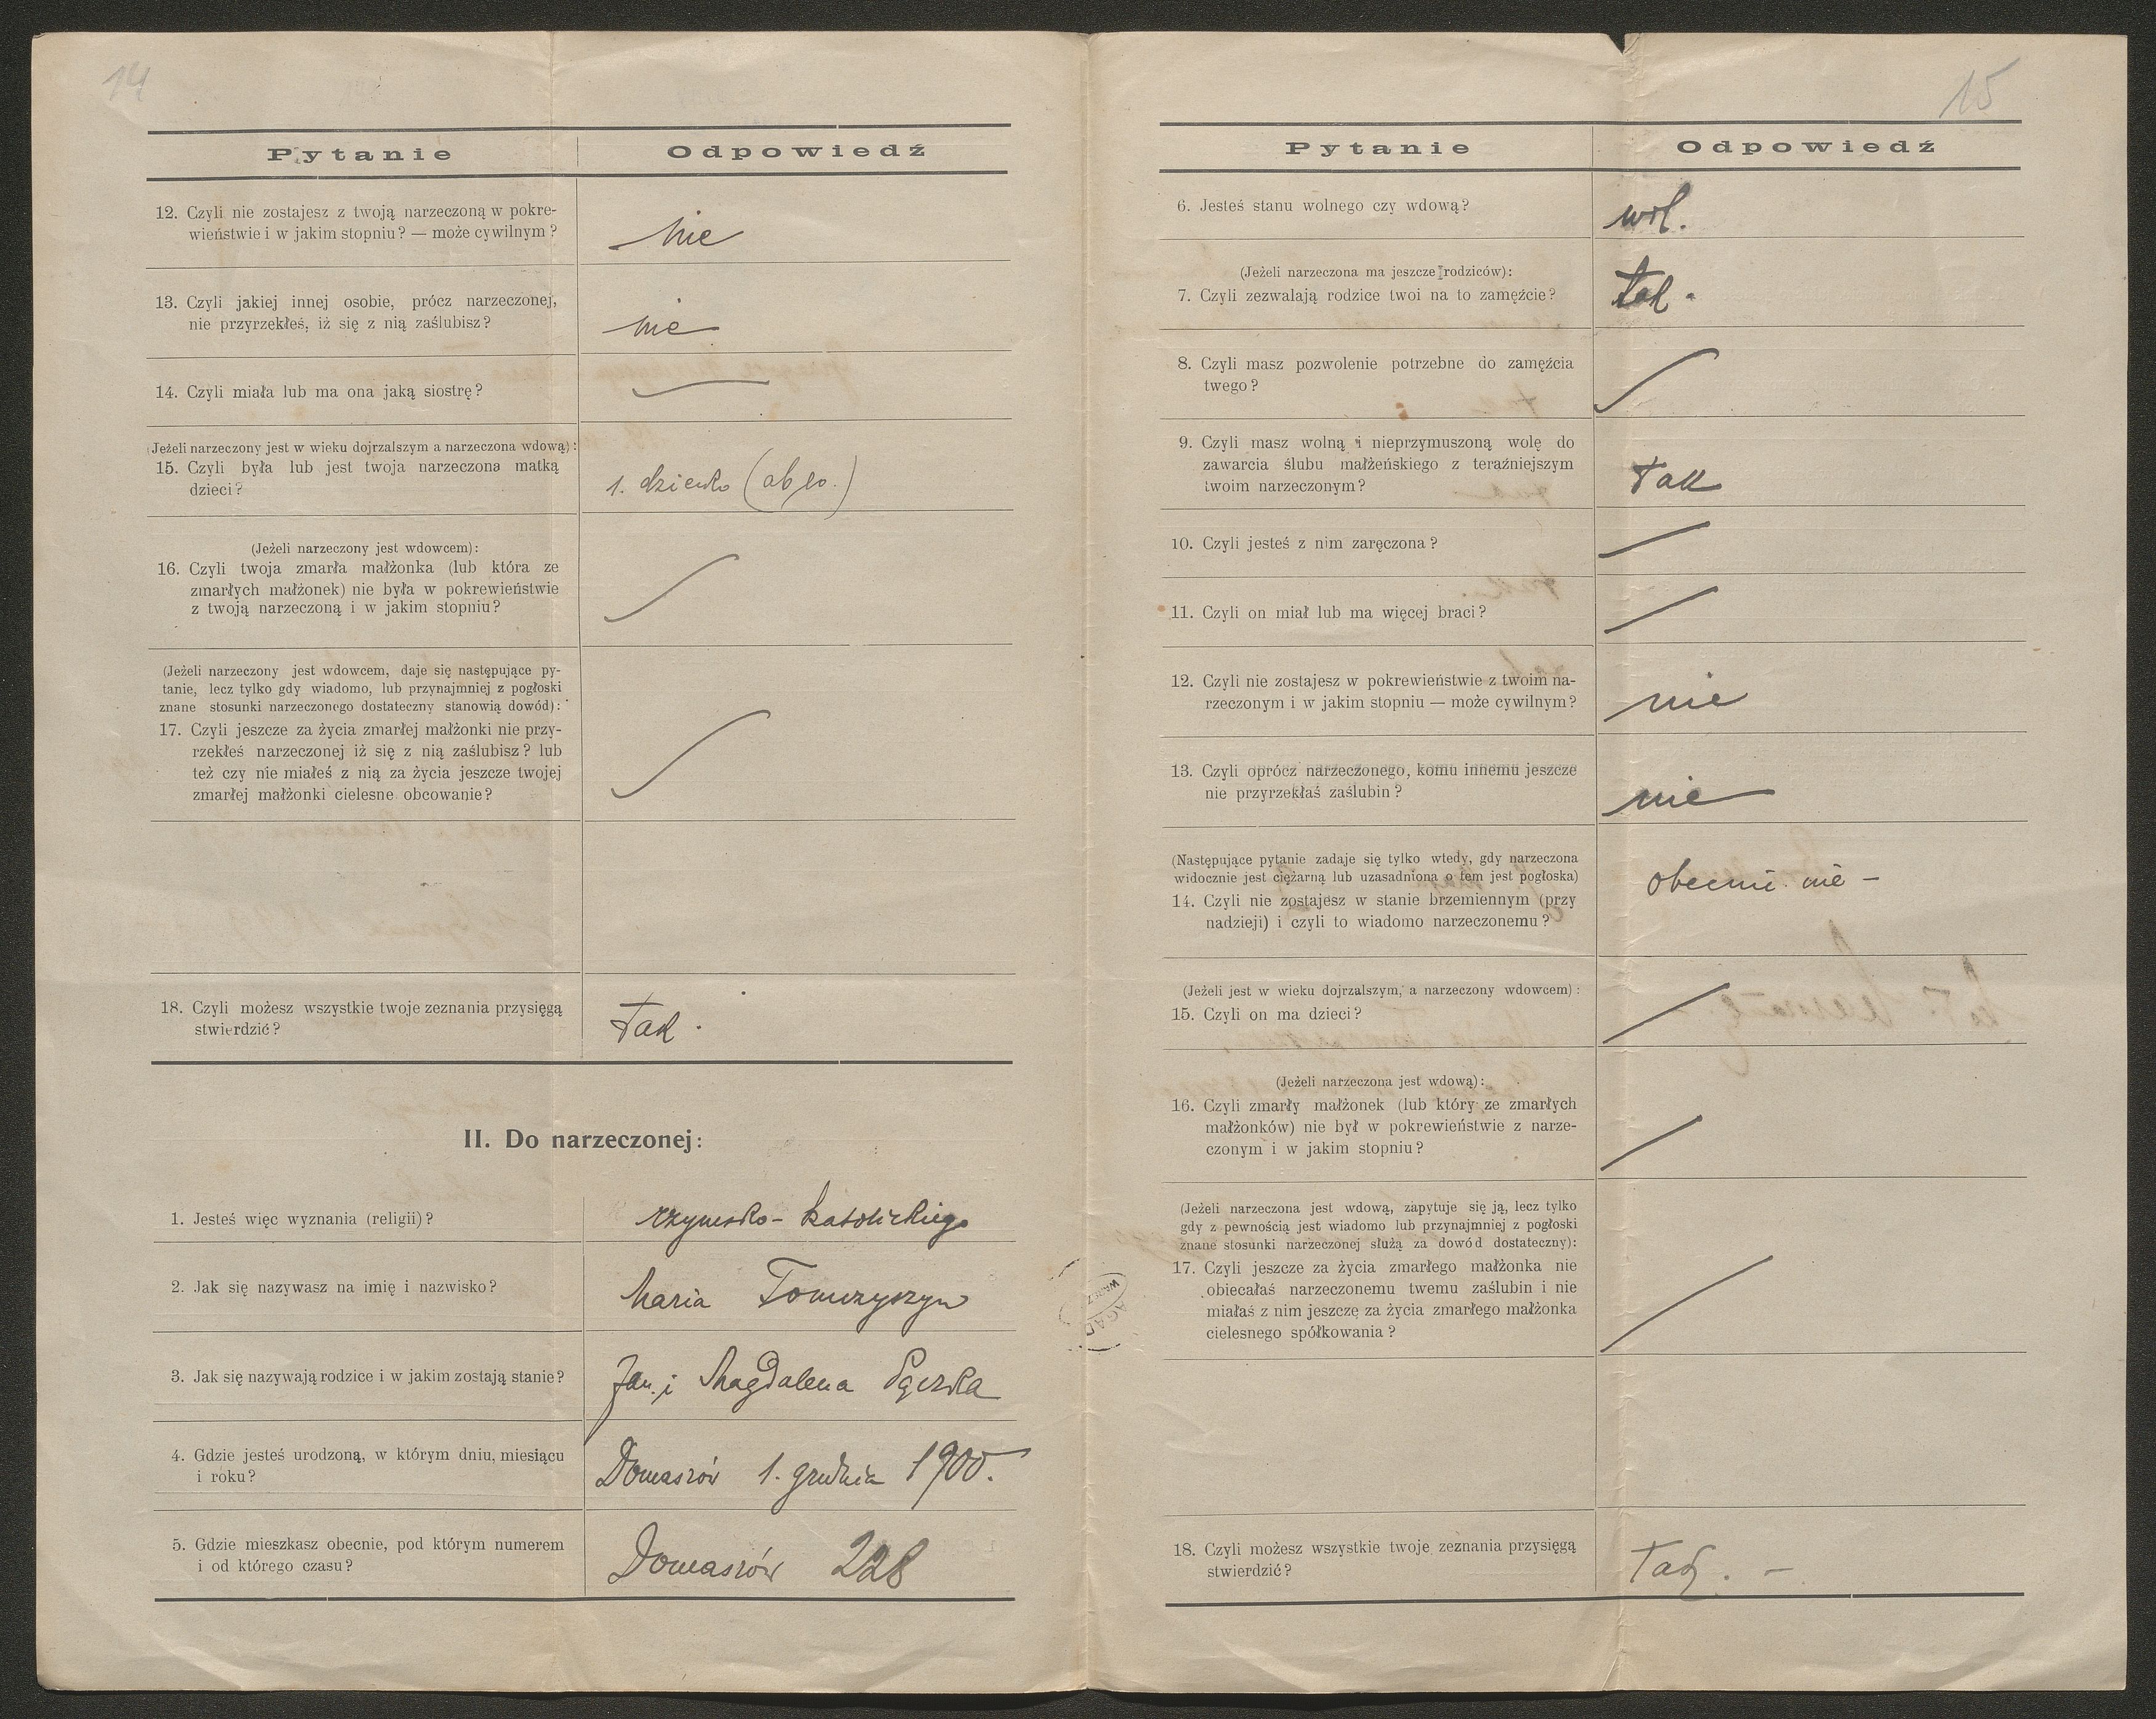 14
Pytanie Odpowiedź
12. Czyli nie zostajesz z twoją narzeczoną w pokre-
wieństwie i w jakim stopniu? — może cywilnym?
nie
13. Czyli jakiej innej osobie, prócz narzeczonej,
nie przyrzekłeś, iż się z nią zaślubisz?
nie
14. Czyli miała lub ma ona jaką siostrę?
(Jeżeli narzeczony jest w wieku dojrzalszym a narzeczona wdową):
15. Czyli była lub jest twoja narzeczona matką
dzieci?
1. dziecko
(Jeżeli narzeczony jest wdowcem):
16. Czyli twoja zmarła małżonka (lub która ze
zmarłych małżonek) nie była w pokrewieństwie
z twoją narzeczoną i w jakim stopniu?
(Jeżeli narzeczony jest wdowcem, daje się następujące py-
tanie, lecz tylko gdy wiadomo, lub przynajmniej z pogłoski
znane stosunki narzeczonego dostateczny stanowią dowód):
17. Czyli jeszcze za życia zmarłej małżonki nie przy-
rzekłeś narzeczonej iż się z nią zaślubisz? lub
też czy nie miałeś z nią za życia jeszcze twojej
zmarłej małżonki cielesne obcowanie?
18. Czyli możesz wszystkie twoje zeznania przysięgą
stwierdzić?
tak.
II. Do narzeczonej:
1. Jesteś więc wyznania (religii)?
rzymsko-katolickiego
2. Jak się nazywasz na imię i nazwisko?
Maria Tomczyszyn
3. Jak się nazywają rodzice i w jakim zostają stanie?
Jan i Magdalena Pączka
4. Gdzie jesteś urodzoną, w którym dniu, miesiącu
i roku?
Domaszów 1. grudnia 1900.
5. Gdzie mieszkasz obecnie, pod którym numerem
i od którego czasu?
Domaszów 228
15
Pytanie Odpowiedź
6. Jesteś stanu wolnego czy wdową?
wol.
(Jeżeli narzeczona ma jeszcze rodziców):
7. Czyli zezwalają rodzice twoi na to zamęźcie?
tak.
8. Czyli masz pozwolenie potrzebne do zamęźcia
twego?
9. Czyli masz wolną i nieprzymuszoną wolę do
zawarcia ślubu małżeńskiego z teraźniejszym
twoim narzeczonym?
tak
10. Czyli jesteś z nim zaręczona?
11. Czyli on miał lub ma więcej braci?
12. Czyli nie zostajesz w pokrewieństwie z twoim na-
rzeczonym i w jakim stopniu — może cywilnym?
nie
13. Czyli oprócz narzeczonego, komu innemu jeszcze
nie przyrzekłaś zaślubin?
nie
(Następujące pytanie zadaje się tylko wtedy, gdy narzeczona
widocznie jest ciężarną lub uzasadniona o tem jest pogłoska)
14. Czyli nie zostajesz w stanie brzemiennym (przy
nadzieji) i czyli to wiadomo narzeczonemu?
obecnie nie -
(Jeżeli jest w wieku dojrzalszym, a narzeczony wdowcem):
15. Czyli on ma dzieci?
(Jeżeli narzeczona jest wdową):
16. Czyli zmarły małżonek (lub który ze zmarłych
małżonków) nie był w pokrewieństwie z narze-
czonym i w jakim stopniu?
(Jeżeli narzeczona jest wdową, zapytuje się ją, lecz tylko
gdy z pewnością jest wiadomo lub przynajmniej z pogłoski
znane stosunki narzeczonej służą za dowód dostateczny):
17. Czyli jeszcze za życia zmarłego małżonka nie
obiecałaś narzeczonemu twemu zaślubin i nie
miałaś z nim jeszczę za życia zmarłego małżonka
cielesnego spółkowania?
18. Czyli możesz wszystkie twoje zeznania przysięgą
stwierdzić?
Tak. -
AGAD